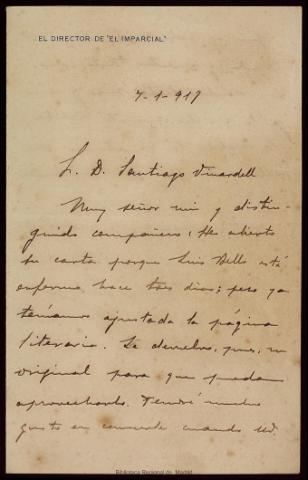 EL DIRECTOR DE "EL IMPARCIAL"
7-1-917
S. D. Santiago Vinardell
Muy señor mio y distin-
guido compañero: He abierto
su carta porque Luis Bello está
enfermo hace tres dias; pero ya
teníamos ajustada la página
literaria. Le devuelvo, pues, su
original para que puedan
aprovecharlo. Tendré mucho
gusto en conocerle cuando Vd.
Biblioteca Regional de Madrid